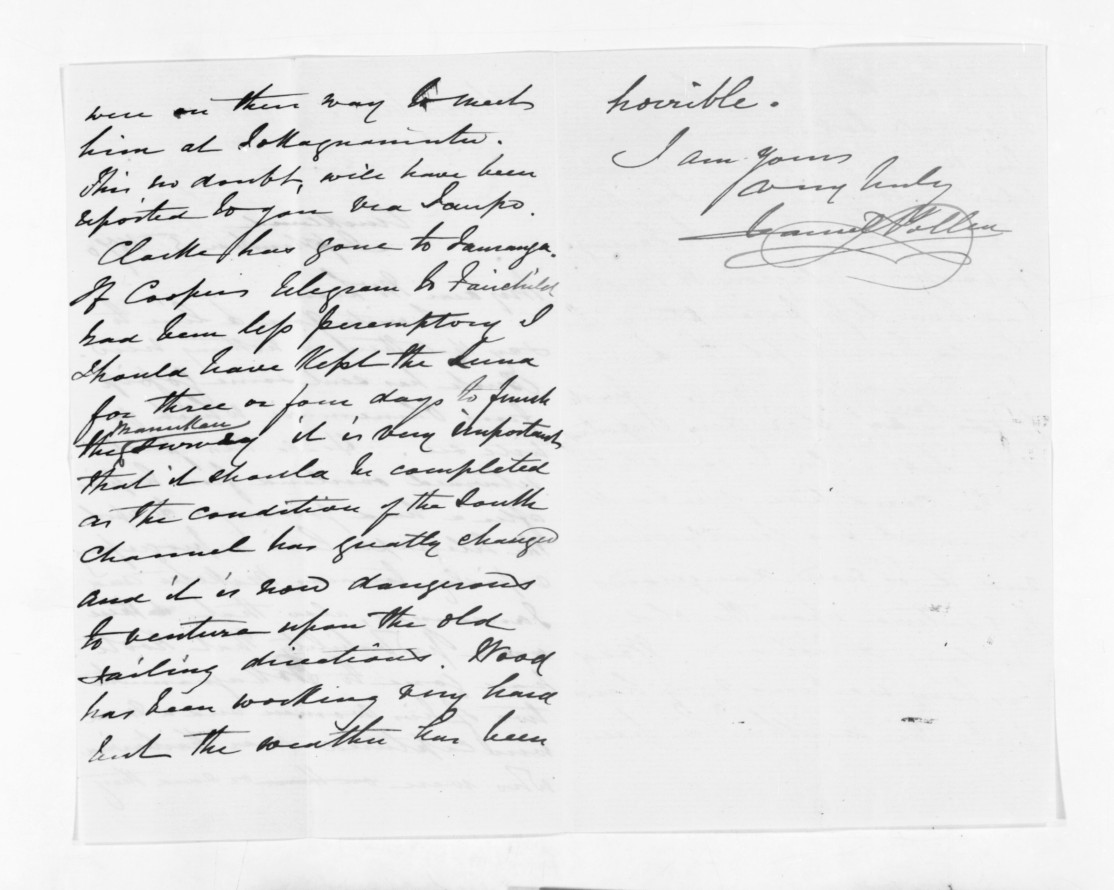 were on their way to meet
him at Tokaguamutu.
This no doubt, will have been
reported to you via Taupo.
Clarke has gone to Tauranga.
If Coopers telegram to Fairchild
had been less peremptory I
should have kept the Luna
for three or four days to finish
the Manukau survey it is very important
that it should be completed
as the condition of the South
Channel has greatly changed
and it is now dangerous
to venture upon the old
sailing directions. Wood
has been working very hard
but the weather has been
horrible.
I am yours
very truly
Daniel Pollen